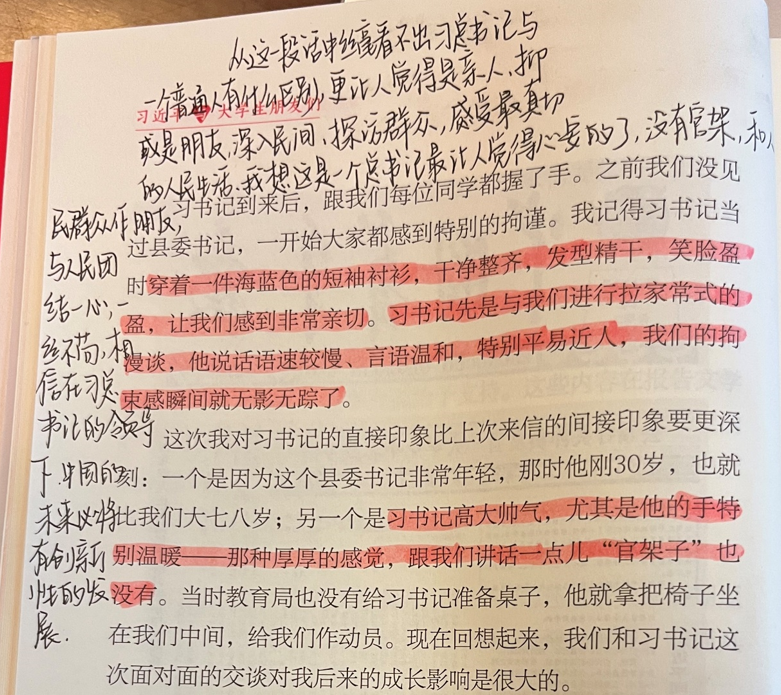 从这一段话中丝毫看不出习总书记与
一个普通人有什么区别,更让人觉得是亲人,抑
习近平与大学生朋友们
或是朋友,深入民间,探访群众,感受最真切
的人民生活.我想这是一个总书记最让人觉得心安的了,没有官架,和人
民群众作朋友,
与人民团
结一心,一
丝不苟,相
信在习总
书记的领导
下,中国的
未来必将
有创新
性的发
展.
习书记到来后，跟我们每位同学都握了手。之前我们没见
过县委书记，一开始大家都感到特别的拘谨。我记得习书记当
时穿着一件海蓝色的短袖衬衫，干净整齐，发型精干，笑脸盈
盈，让我们感到非常亲切。习书记先是与我们进行拉家常式的
漫谈，他说话语速较慢、言语温和，特别平易近人，我们的拘
束感瞬间就无影无踪了。
这次我对习书记的直接印象比上次来信的间接印象要更深
刻：一个是因为这个县委书记非常年轻，那时他刚30岁，也就
比我们大七八岁；另一个是习书记高大帅气，尤其是他的手特
别温暖——那种厚厚的感觉，跟我们讲话一点儿“官架子”也
没有。当时教育局也没有给习书记准备桌子，他就拿把椅子坐
在我们中间，给我们作动员。现在回想起来，我们和习书记这
次面对面的交谈对我后来的成长影响是很大的。